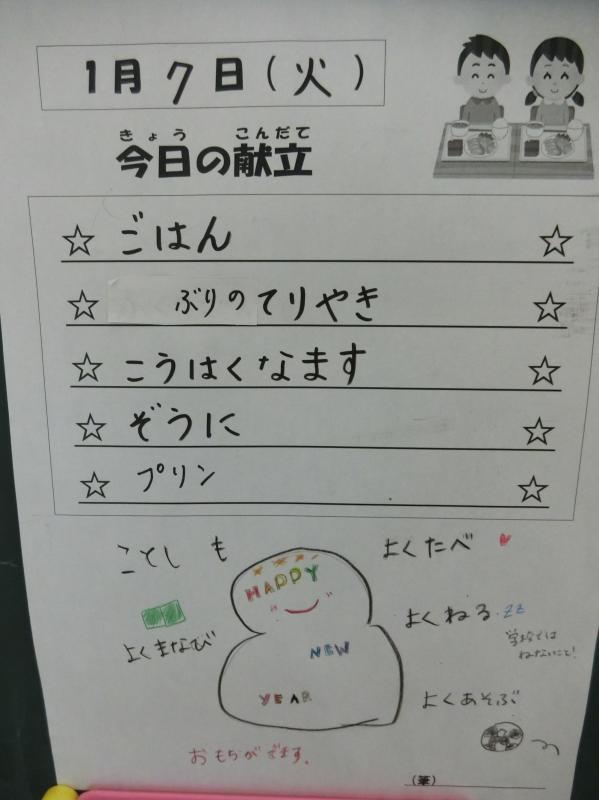 1月7日(火)
きょう こんだて
今日の献立
☆ ごはん ☆
☆ ぶりのてりやき ☆
☆ こうはくなます ☆
☆ ぞうに ☆
☆ プリン ☆
ことしも
よくたべ
HAPPY
よくねる zz
学校では
ねないこと!
よくまなび
NEW
YEAR
よくあそぶ
おもちがでます。
(筆)